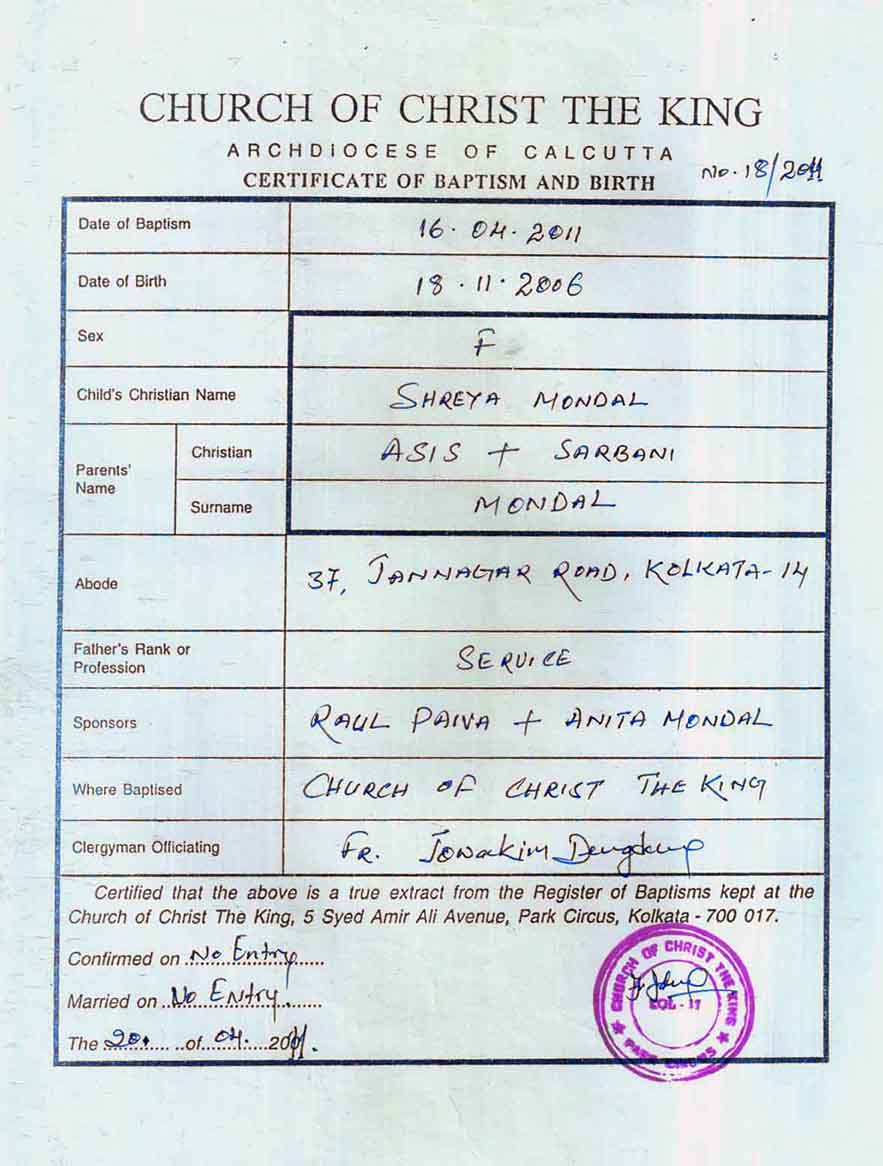 CHURCH OF CHRIST THE KING
ARCHDIOCESE OF CALCUTTA
CERTIFICATE OF BAPTISM AND BIRTH No. 18/2011
Date of Baptism 16. 04. 2011
Date of Birth 18. 11. 2006
Sex F
Child's Christian Name SHREYA MONDAL
Parents' Name Christian ASIS + SARBANI
Surname MONDAL
Abode 37, JANNAGAR ROAD, KOLKATA-14
Father's Rank or Profession SERVICE
Sponsors RAUL PAIVA + ANITA MONDAL
Where Baptised CHURCH OF CHRIST THE KING
Clergyman Officiating FR. Jowakim
Certified that the above is a true extract from the Register of Baptisms kept at the
Church of Christ The King, 5 Syed Amir Ali Avenue, Park Circus, Kolkata - 700 017.
Confirmed on No Entry
Married on No Entry.
The 20. of 04. 2011.
CHURCH OF CHRIST THE KING
PARK CIRCUS